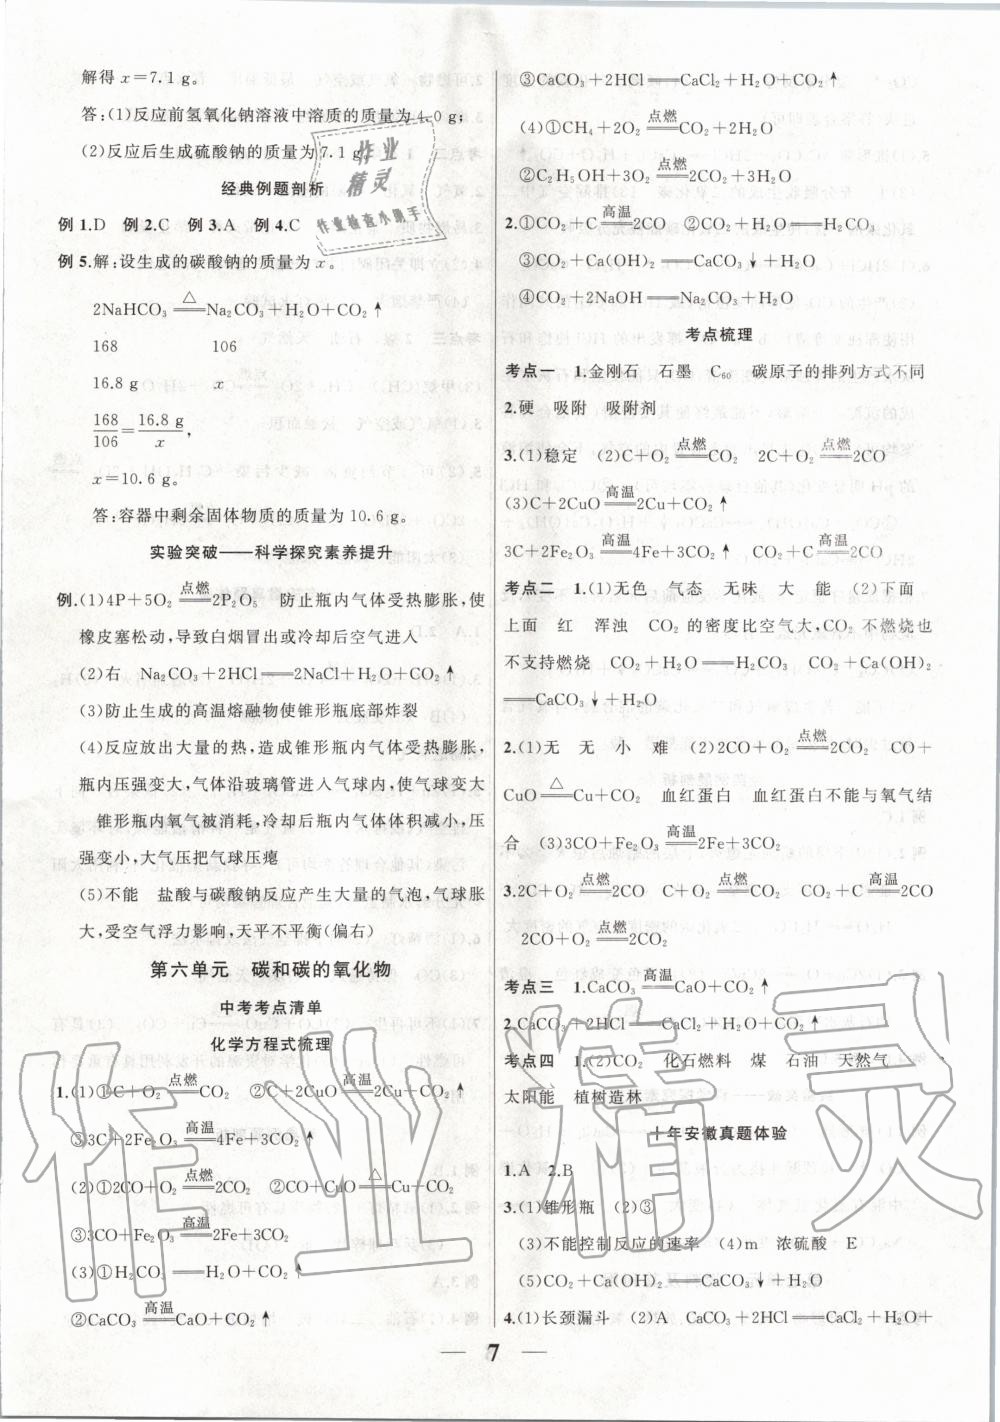 解得 x=7.1 g。
答:(1)反应前氢氧化钠溶液中溶质的质量为 4.0 g;
(2)反应后生成硫酸钠的质量为 7.1 g。
经典例题剖析
例 1.D 例 2.C 例 3.A 例 4.C
例 5.解:设生成的碳酸钠的质量为 x。
2NaHCO₃ =△= Na₂CO₃+H₂O+CO₂↑
168 106
16.8 g x
168/106=16.8 g/x,
x=10.6 g。
答:容器中剩余固体物质的质量为 10.6 g。
实验突破——科学探究素养提升
例.(1)4P+5O₂ =点燃= 2P₂O₅ 防止瓶内气体受热膨胀,使
橡皮塞松动,导致白烟冒出或冷却后空气进入
(2)右 Na₂CO₃+2HCl══2NaCl+H₂O+CO₂↑
(3)防止生成的高温熔融物使锥形瓶底部炸裂
(4)反应放出大量的热,造成锥形瓶内气体受热膨胀,
瓶内压强变大,气体沿玻璃管进入气球内,使气球变大
锥形瓶内氧气被消耗,冷却后瓶内气体体积减小,压
强变小,大气压把气球压瘪
(5)不能 盐酸与碳酸钠反应产生大量的气泡,气球胀
大,受空气浮力影响,天平不平衡(偏右)
第六单元 碳和碳的氧化物
中考考点清单
化学方程式梳理
1.(1)①C+O₂ =点燃= CO₂ ②C+2CuO =高温= 2Cu+CO₂↑
③3C+2Fe₂O₃ =高温= 4Fe+3CO₂↑
(2)①2CO+O₂ =点燃= 2CO₂ ②CO+CuO =△= Cu+CO₂
③3CO+Fe₂O₃ =高温= 2Fe+3CO₂
(3)①H₂CO₃══H₂O+CO₂↑
②CaCO₃ =高温= CaO+CO₂↑
③CaCO₃+2HCl══CaCl₂+H₂O+CO₂↑
(4)①CH₄+2O₂ =点燃= CO₂+2H₂O
②C₂H₅OH+3O₂ =点燃= 2CO₂+3H₂O
2.①CO₂+C =高温= 2CO ②CO₂+H₂O══H₂CO₃
③CO₂+Ca(OH)₂══CaCO₃↓+H₂O
④CO₂+2NaOH══Na₂CO₃+H₂O
考点梳理
考点一 1.金刚石 石墨 C₆₀ 碳原子的排列方式不同
2.硬 吸附 吸附剂
3.(1)稳定 (2)C+O₂ =点燃= CO₂ 2C+O₂ =点燃= 2CO
(3)C+2CuO =高温= 2Cu+CO₂↑
3C+2Fe₂O₃ =高温= 4Fe+3CO₂↑ CO₂+C =高温= 2CO
考点二 1.(1)无色 气态 无味 大 能 (2)下面
上面 红 浑浊 CO₂ 的密度比空气大,CO₂ 不燃烧也
不支持燃烧 CO₂+H₂O══H₂CO₃ CO₂+Ca(OH)₂
══CaCO₃↓+H₂O
2.(1)无 无 小 难 (2)2CO+O₂ =点燃= 2CO₂ CO+
CuO =△= Cu+CO₂ 血红蛋白 血红蛋白不能与氧气结
合 (3)3CO+Fe₂O₃ =高温= 2Fe+3CO₂
3.2C+O₂ =点燃= 2CO C+O₂ =点燃= CO₂ CO₂+C =高温= 2CO
2CO+O₂ =点燃= 2CO₂
考点三 1.CaCO₃ =高温= CaO+CO₂↑
2.CaCO₃+2HCl══CaCl₂+H₂O+CO₂↑
考点四 1.(2)CO₂ 化石燃料 煤 石油 天然气
太阳能 植树造林
十年安徽真题体验
1.A 2.B
3.(1)锥形瓶 (2)③
(3)不能控制反应的速率 (4)m 浓硫酸 E
(5)CO₂+Ca(OH)₂══CaCO₃↓+H₂O
4.(1)长颈漏斗 (2)A CaCO₃+2HCl══CaCl₂+H₂O+
7
作业
精灵
作业检查小助手
作业精灵